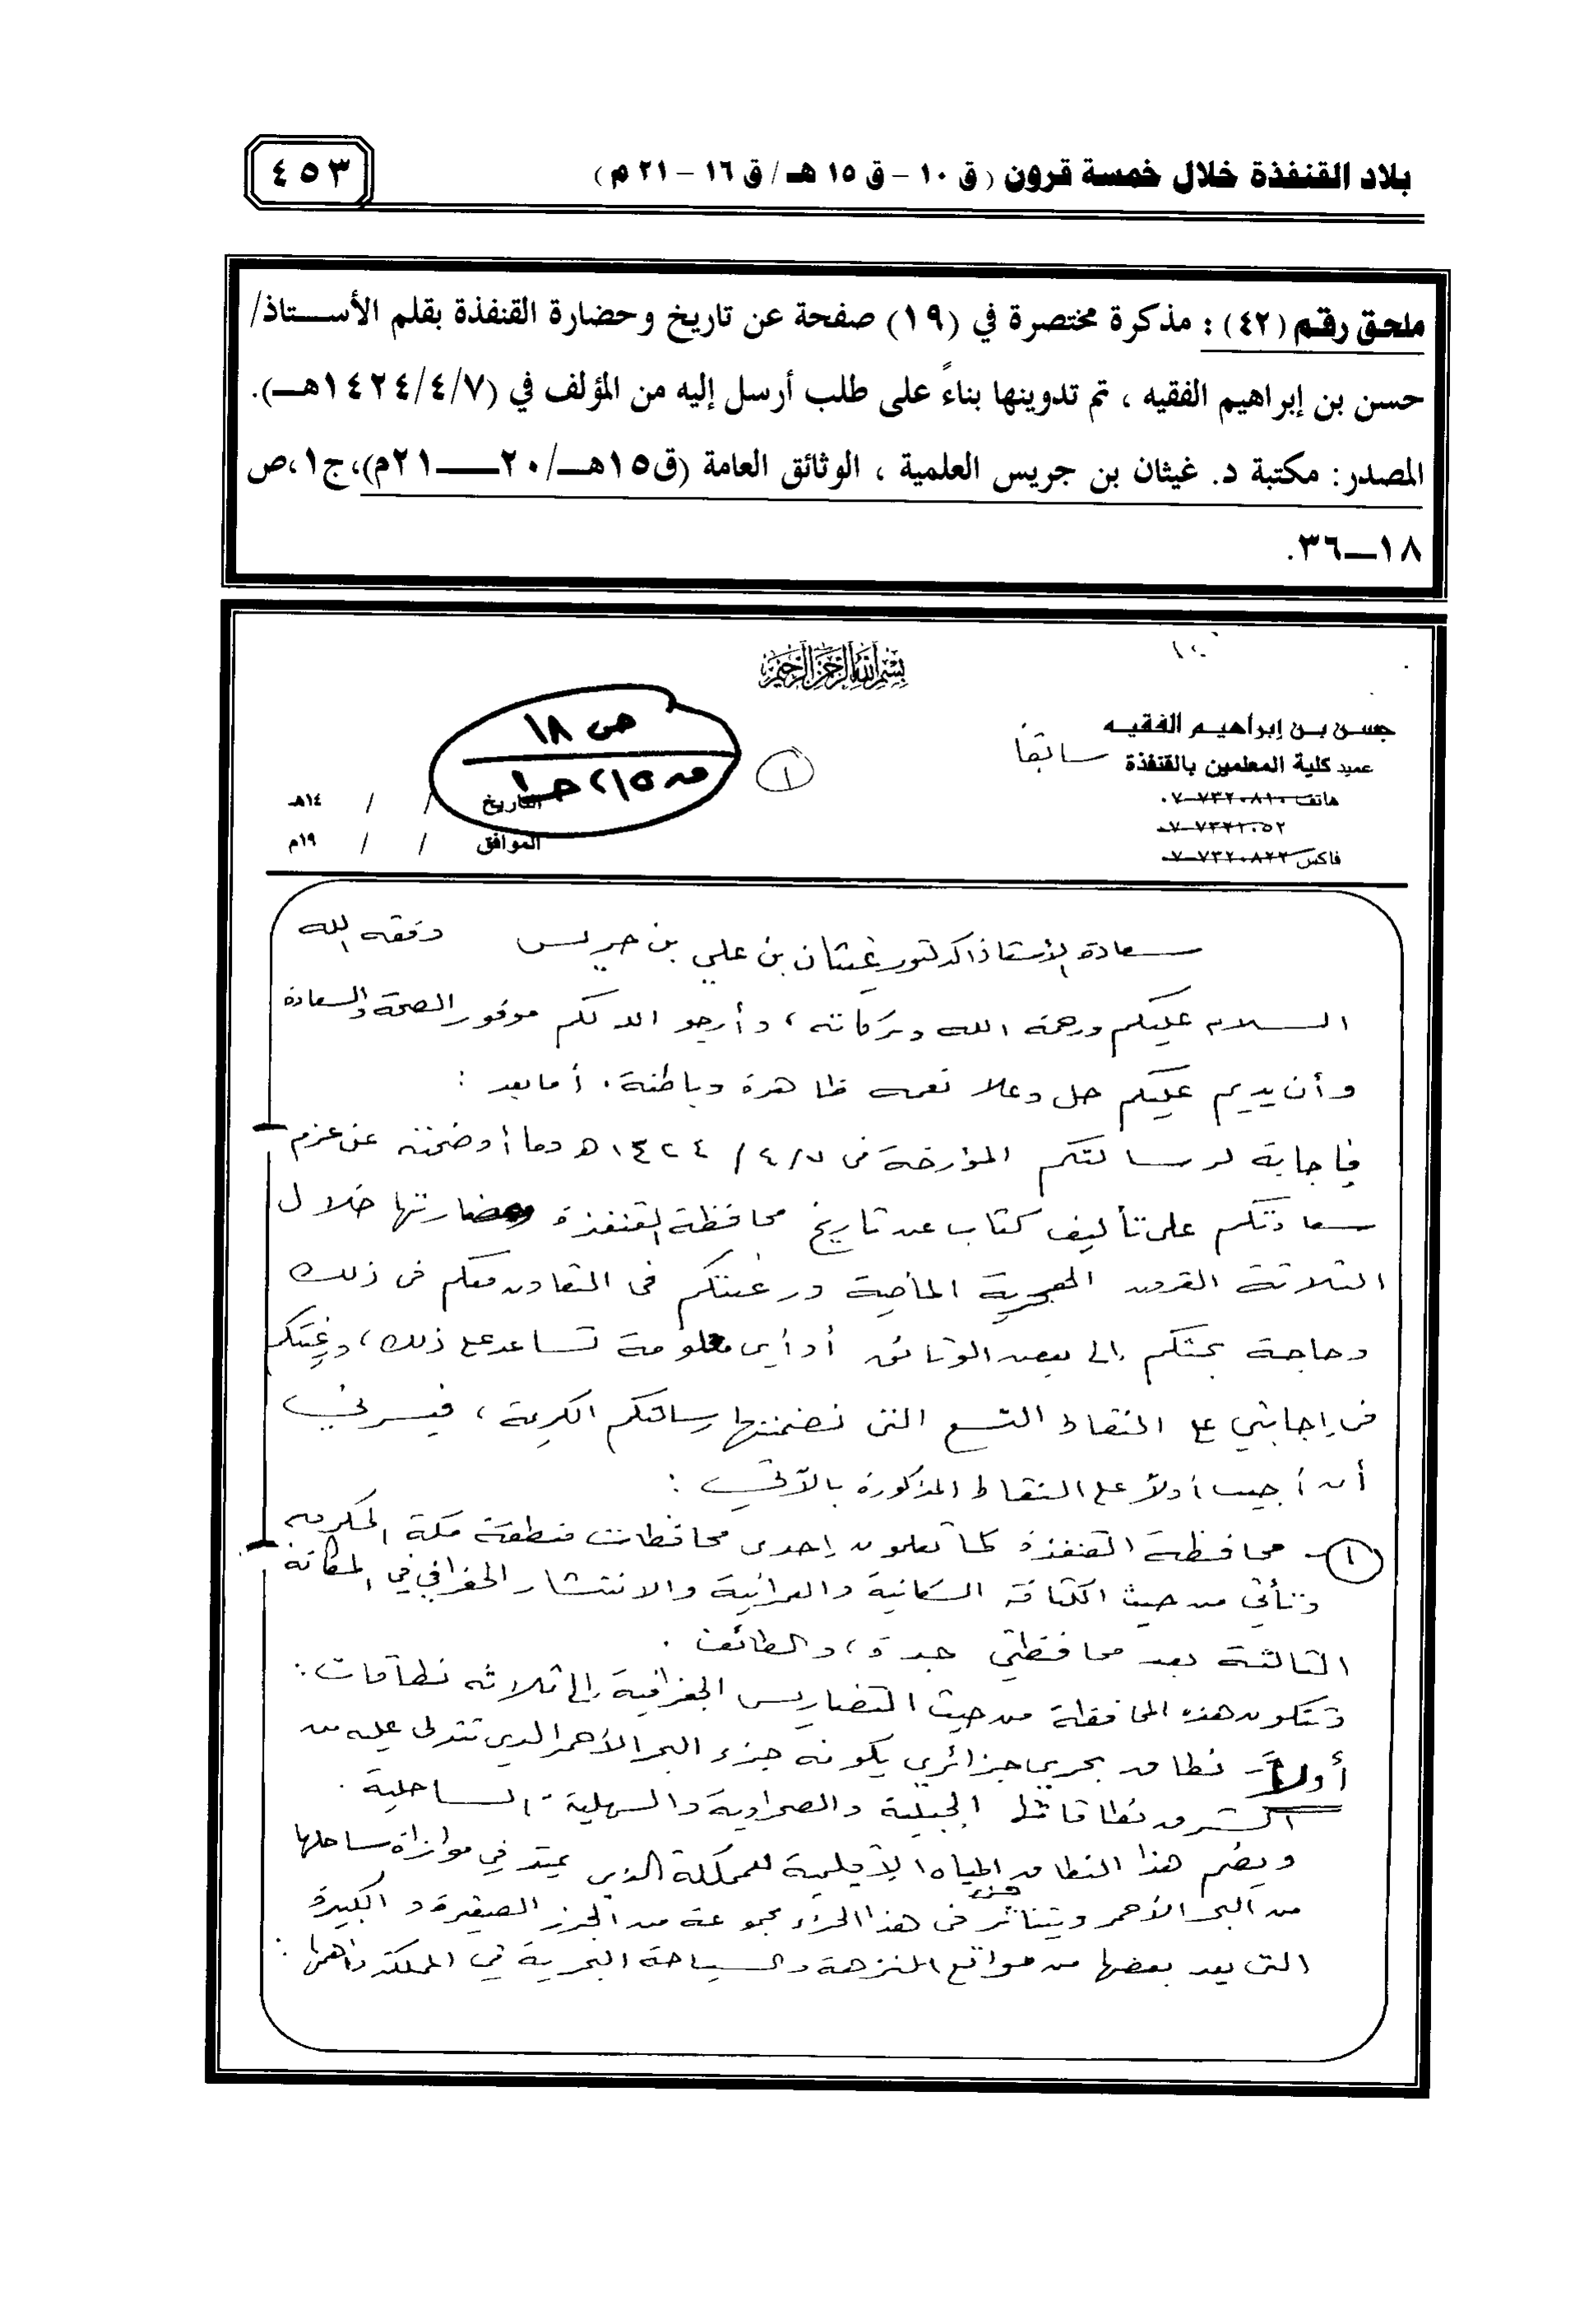 بلاد القنفذة خلال خمسة قرون (ق ١٠ - ق ١٥ هـ / ق ١٦ - ٢١ م)
٤٥٣
ملحق رقم (٤٢): مذكرة مختصرة في (١٩) صفحة عن تاريخ وحضارة القنفذة بقلم الأستاذ/
حسن بن إبراهيم الفقيه ، تم تدوينها بناءً على طلب أرسل إليه من المؤلف في (١٤٢٤/٤/٧هـ).
المصدر: مكتبة د. غيثان بن جريس العلمية ، الوثائق العامة (ق١٥هـ/٢٠—٢١م)، ج١، ص
١٨—٣٦.
بسم الله الرحمن الرحيم
حسن بن إبراهيم الفقيه
عميد كلية المعلمين بالقنفذة سابقا
هاتف ٧٣٢٠٨١٠-٠٧
٧٣٢١٠٥٢-٠٧
فاكس ٧٣٢٠٨٢٢-٠٧
ص ١٨
ج١
١
التاريخ / / ١٤هـ
الموافق / / ١٩م
سعادة الأستاذ الدكتور غيثان بن علي بن جريس وفقه الله
السلام عليكم ورحمة الله وبركاته ، وأرجو الله لكم موفور الصحة والسعادة
وأن يديم عليكم جل وعلا نعمه ظاهرة وباطنة . أما بعد :
فإجابة لرسالتكم المؤرخة في ٧/ ٤/ ١٤٢٤هـ وما أوضحتنه عن عزم
سعادتكم على تأليف كتاب عن تاريخ محافظة القنفذة وحضارتها خلال
الثلاثة القرون الهجرية الماضية ورغبتكم في التعاون معكم في ذلك
وحاجة بحثكم إلى بعض الوثائق أو أي معلومة تساعد على ذلك ، ورغبتكم
في إجابتي على النقاط التسع التي تضمنتها رسالتكم الكريمة ، فيسرني
أن أجيب أولاً على النقاط المذكورة بالآتي :
١- محافظة القنفذة كما تعلمون إحدى محافظات منطقة مكة المكرمة
وتأتي من حيث الكثافة السكانية والعمرانية والانتشار الجغرافي في المكانة
الثالثة بعد محافظتي جدة ، والطائف .
وتتكون هذه المحافظة من حيث التضاريس الجغرافية إلى ثلاثة نطاقات :
أولاً- نطاق بحري جزائري يكونه جزء البحر الأحمر الذي تتدلى عليه من
الشرق نطاقاتها الجبلية والصحراوية والسهلية - الساحلية .
ويضم هذا النطاق المياه الإقليمية للمملكة الذي يمتد في موازاة ساحلها
من البحر الأحمر ويتناثر في هذا الجزء مجموعة من الجزر الصغيرة والكبيرة
التي يعد بعضها من مواقع النزهة والسياحة البحرية في المملكة وأهمها :